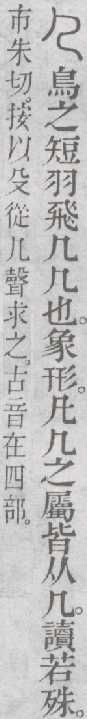 几鳥之短羽飛几几也。象形。凡几之屬皆从几。讀若殊。
市朱切。按以殳從几聲求之。古音在四部。